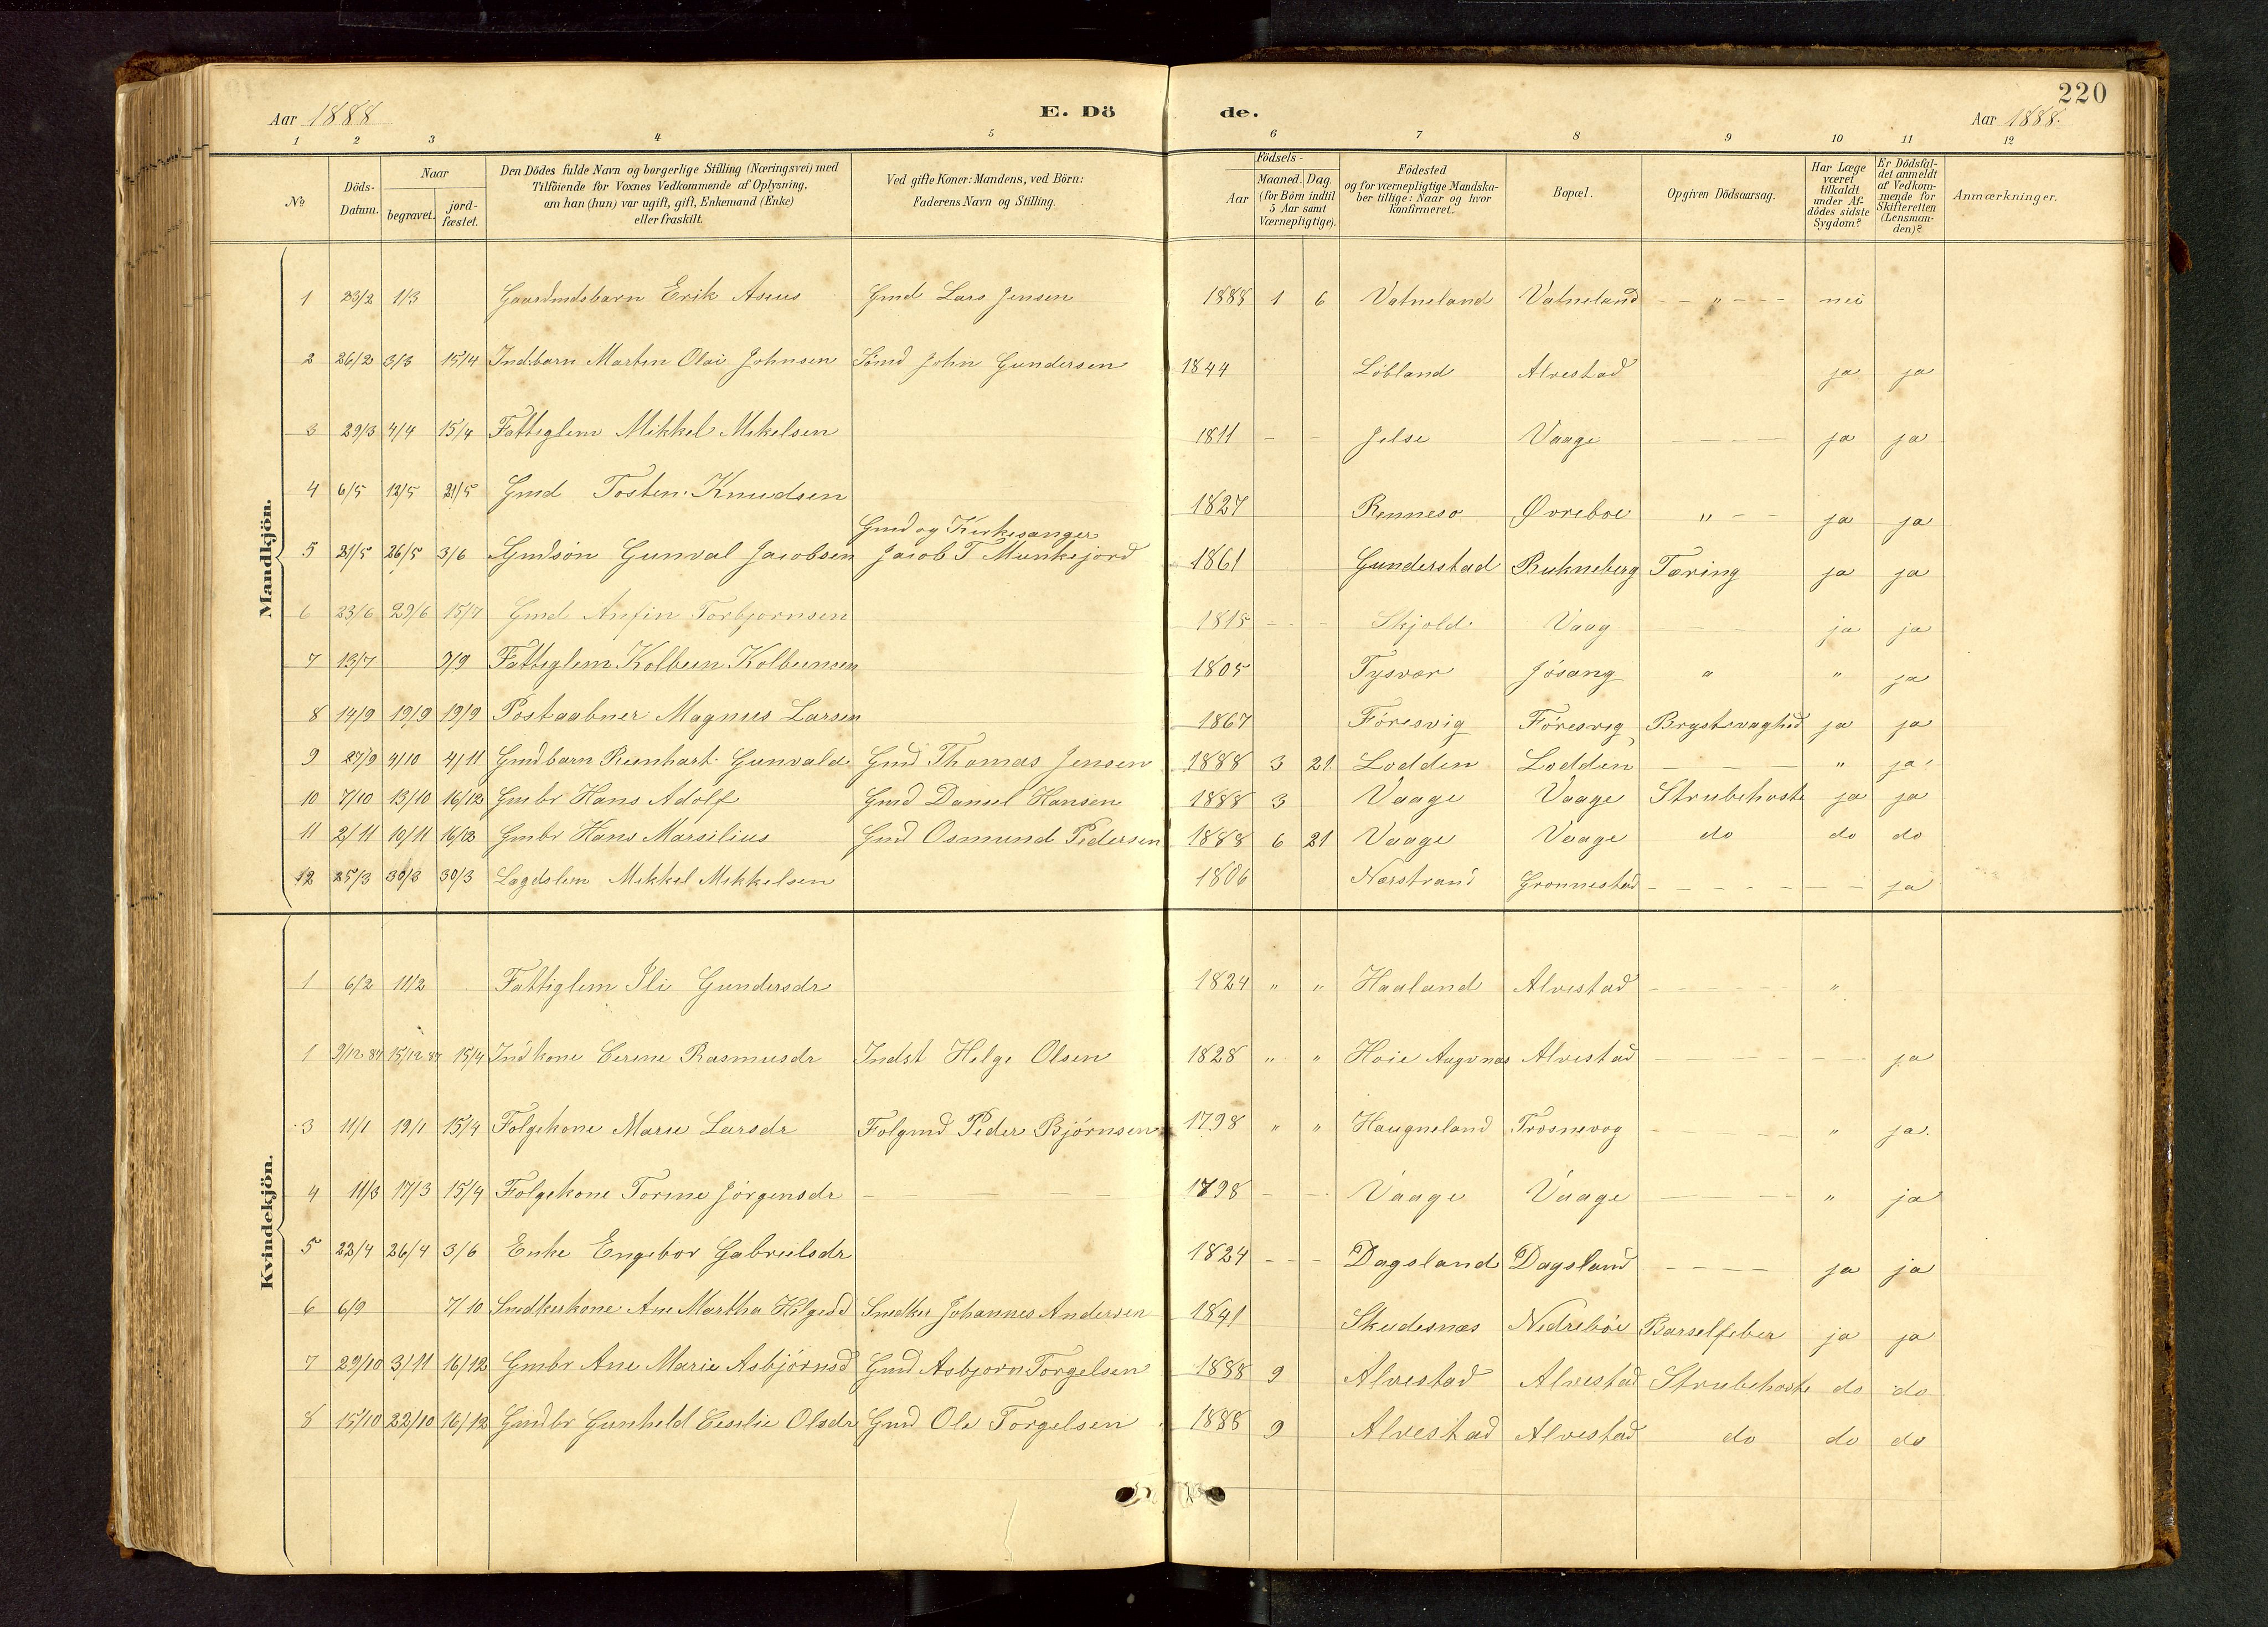 220
Aar 1888 E. Dö de. Aar 1888.
1 2 3 4 5 6 7 8 9 10 11 12
№ Döds-Datum. Naar begravet. jord-fæstet. Den Dödes fulde Navn og borgerlige Stilling (Næringsvei) med Tilföiende for Voxnes Vedkommende af Oplysning, om han (hun) var ugift, gift, Enkemand (Enke) eller fraskilt. Ved gifte Koner: Mandens, ved Börn: Faderens Navn og Stilling. Födsels- Aar Maaned. Dag. (for Börn indtil 5 Aar samt Værnepligtige). Födested og for værnepligtige Mandska-ber tillige: Naar og hvor konfirmeret. Bopæl. Opgiven Dödsaarsag. Har Læge været tilkaldt under Af-dödes sidste Sygdom? Er Dödsfal-det anmeldt af Vedkom-mende for Skifteretten (Lensman-den)? Anmærkninger.
Mandkjön.
1 23/2 1/3 Gaardmdsbarn Erik Aseus Gmd Lars Jensen 1888 1 6 Vatneland Vatneland — — " — — nei
2 26/2 3/3 15/4 Indbarn Martin Olai Johnsen John Gundersen 1844 Löbland Alvestad ja ja
3 29/3 4/4 15/4 Fattiglem Mikkel Mikelsen 1811 — — Jelse Vaage — — — — ja ja
4 6/5 12/5 21/5 Gmd Tosten Knudsen 1827 Renneso Øvreboe " — — ja ja
5 21/5 26/5 3/6 Gmdsön Gunval Jacobsen Gmd og Kirkesanger Jacob T Munkejord 1861 Gunderstad Bukneberg Tæring ja ja
6 23/6 29/6 15/7 Gmd Anfin Torbjornsen 1815 — — Skjold Vaag — — ja ja
7 13/7 7/9 Fattiglem Kolbeen Kolbeensen 1805 Tysvær Jösang " " ja
8 14/9 19/9 19/9 Postaabner Magnus Larsen 1867 Föresvig Föresvig Brystsvaghed ja ja
9 27/9 4/10 4/11 Gmdbarn Reinhart Gunvald Gmd Thomas Jensen 1888 3 21 Lodden Lodden — — — " ja
10 7/10 13/10 16/12 Gmbr Hans Adolf Gmd Daniel Hansen 1888 3 Vaage Vaage Strubehoste ja ja
11 2/11 10/11 16/12 Gmbr Hans Marsilius Gmd Osmund Pedersen 1888 6 21 Vaage Vaage do do do
12 25/3 30/3 30/3 Lægdslem Mikkel Mikkelsen 1806 Nærstrand Gronnestad — — — — — — ja
Kvindekjön.
1 6/2 11/2 Fattiglem Ili Gundersdr 1824 " " Haaland Alvestad — — — — "
1 9/12 87 15/12 87 15/4 Indkone Cerine Rasmusdr Indst Helge Olsen 1828 " " Hoie Alvestad — — — — — — ja
3 11/1 19/1 15/4 Folgekone Marie Larsdr Folgmd Peder Björnsen 1798 " " Haugneland Trosnevog — — — " ja.
4 11/3 17/3 15/4 Folgekone Torine Jörgensdr — — 1798 — — Vaage Vaage — — — — " ja
5 22/4 26/4 3/6 Enke Engebor Gabrielsdr 1824 — — Dagsland Dagsland — — — — ja ja
6 6/9 7/10 Snedkerkone Ane Martha Helgesd Snedker Johannes Andersen 1841 Skudesnæs Nedreböe Barselfeber ja ja
7 29/10 3/11 16/12 Gmbr Ane Marie Asbjörnsd Gmd Asbjorn Torgelsen 1888 9 Alvestad Alvestad Strubehoste do do
8 15/10 22/10 16/12 Gmdbr Gunheld Cesilie Olsdr Gmd Ole Torgelsen 1888 9 Alvestad Alvestad do do do